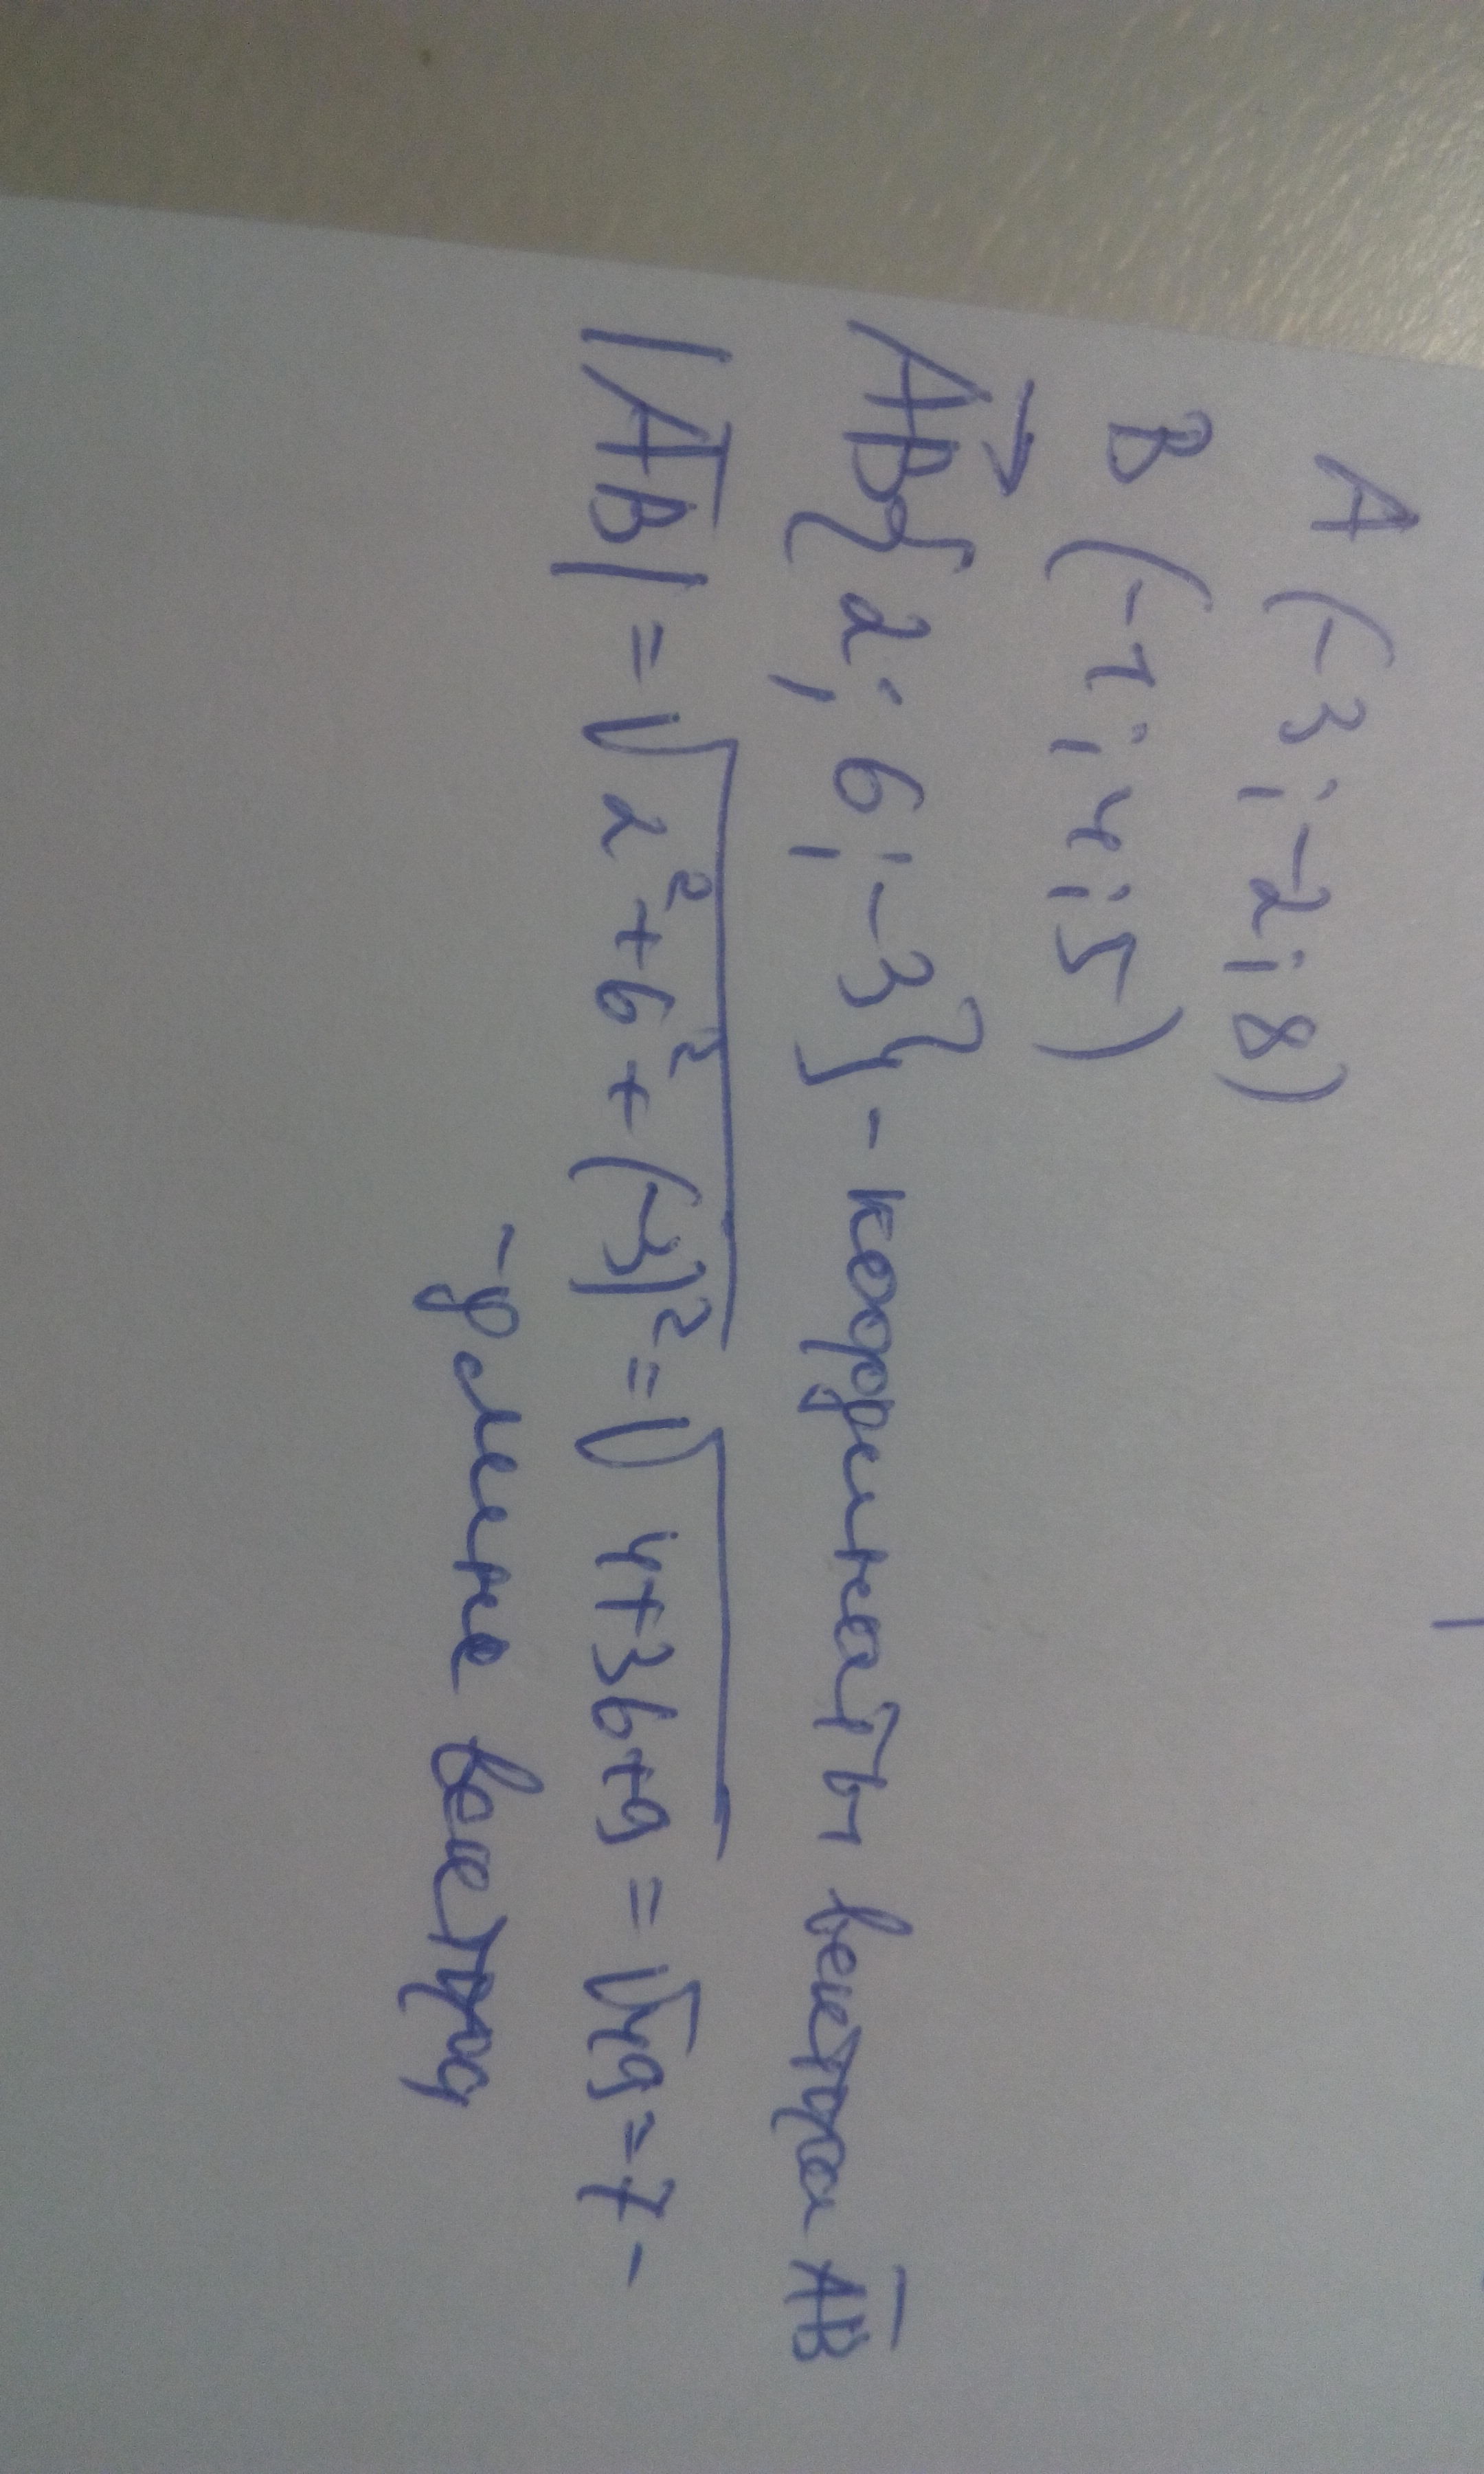 A (-3; -2; 8)
B (-1; 4; 5)
AB{2; 6; -3} - координаты вектора AB
|AB| = √2²+6²+(-3)² = √4+36+9 = √49 = 7 -
- длина вектора